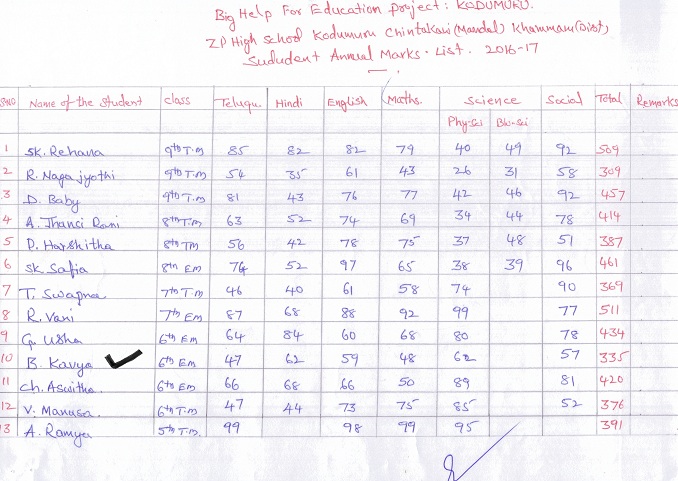 Big Help For Education project: KODUMURU.
ZP High School Kodumuru Chintakani (Mandal) Khammam (Dist)
Sududent Annual Marks. List. 2016-17
S.NO Name of the Student class Telugu. Hindi English Maths. Science Social Total Remarks
Phy.Sci Bio-sci
1 SK. Rehana 9th T.M 85 82 82 79 40 49 92 509
2 R. Naga jyothi 9th T.M 54 35 61 43 26 31 58 309
3 D. Baby 9th T.M 81 43 76 77 42 46 92 457
4 A. Jhanci Rani 8th T.M 63 52 74 69 34 44 78 414
5 P. Harshitha 8th TM 56 42 78 75 37 48 51 387
6 SK Safia 8th EM 74 52 97 65 38 39 96 461
7 T. Swapna 7th T.M 46 40 61 58 74 90 369
8 R. Vani 7th EM 87 68 88 92 99 77 511
9 G. Usha 6th EM 64 84 60 68 80 78 434
10 B. Kavya 6th EM 47 62 59 48 62 57 335
11 Ch. Aswitha. 6th EM 66 68 66 50 89 81 420
12 V. Manusa. 6th T.M 47 44 73 75 85 52 376
13 A. Ramya 5th T.M. 99 98 99 95 391